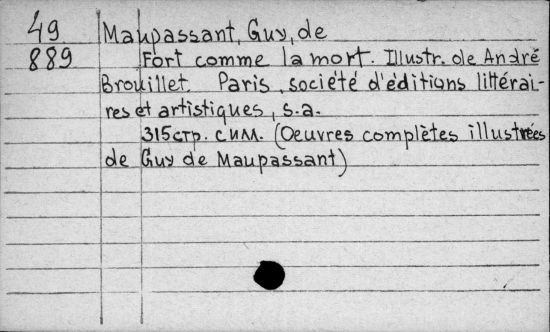 49 Maupassant, Guy, de
889 Fort comme la mort. Illustr. de André
Brouillet. Paris, société d'éditions littérai-
res et artistiques, s.a.
315 стр. с илл. (Oeuvres complètes illustrées
de Guy de Maupassant)